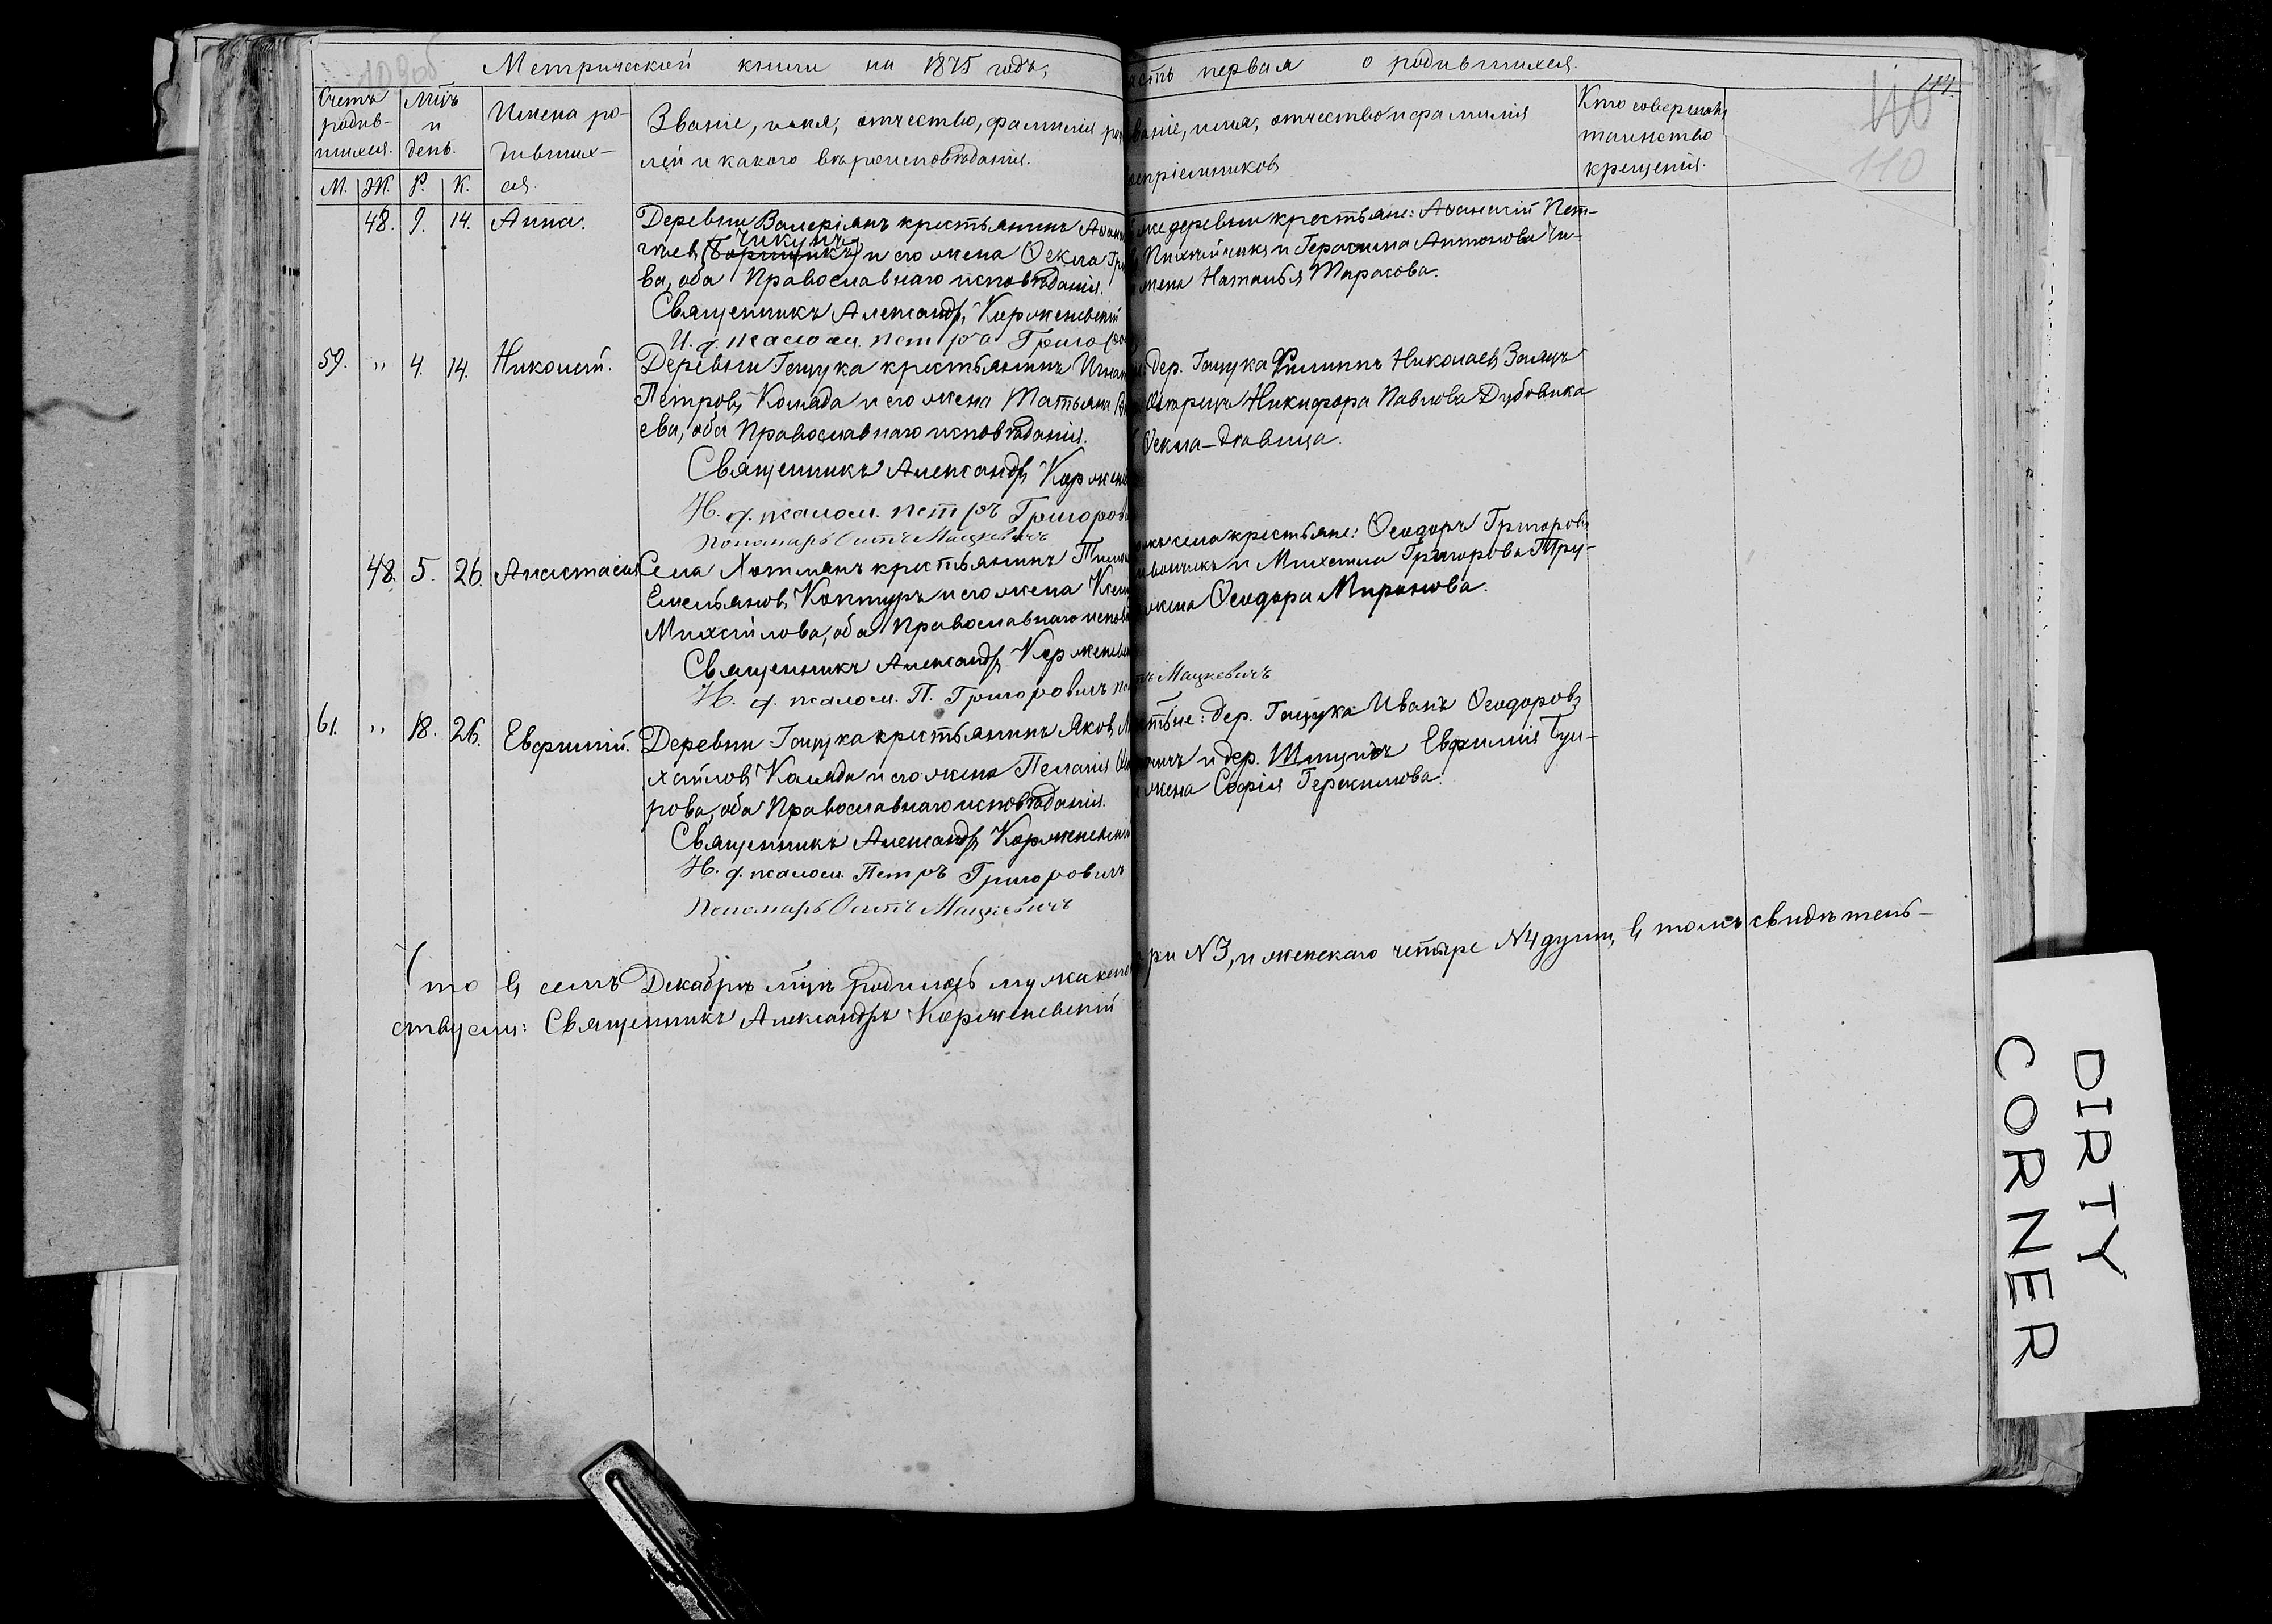 109об
Метрической книги на 1875 годъ, асть первая о родившихся.
111.
110
110
Счетъ родив-шихся.
Мцъ и день.
Имена ро-дивших-ся.
Званіе, имя, отчество, фамилія ро
лей и какого вѣроисповѣданія.
ваніе, имя, отчество и фамилія
епріемниковъ
Кто совершалъ
таинство
крещенія.
М. Ж. Р. К.
48. 9. 14. Анна.
Деревни Валеріянъ крестьянинъ Аѳана
сіевъ Чикунъ и его жена Ѳекла Гри
ва, оба Православнаго исповѣданія.
Священникъ Александръ Корженевскій
И. д. псалом. Петръ Григоро
же деревни крестьяне: Аѳанасій Пет-
и Герасима Антонова Чи-
жена Наталья Тарасова.
59. " 4. 14. Николай.
Деревни Гацука крестьянинъ Игнат
Петровъ Коляда и его жена Татьяна
ева, оба Православнаго исповѣданія.
Священникъ Александръ Коржене
И. д. псалом. Петръ Григорови
Пономарь Осипъ Мацкевичъ
дер. Гацука Филиппъ Николаевъ Заяцъ
Никифора Павлова Дубовика
Ѳекла-дѣвица.
48. 5. 26. Анастасія
Села Хотлянъ крестьянинъ Тимо
Емельяновъ Коптуръ и его жена Ксен
Михайлова, оба Православнаго испов
Священникъ Александръ Корженев
И. д. псалом. П. Григоровичъ
села крестьяне: Ѳеодоръ Григоровъ
и Михаила Григорова Тру-
жена Ѳеодора Миронова.
Мацкевичъ
61. " 18. 26. Евфимій.
Деревни Гацука крестьянинъ Яковъ М
хайловъ Коляда и его жена Пелагія
рова, оба Православнаго исповѣданія.
Священникъ Александръ Корженевскій
И. д. псалом. Петръ Григоровичъ
Пономарь Осипъ Мацкевичъ
дер. Гацука Иванъ Ѳеодоровъ
и дер. Евфимія
жена Софія Герасимова.
Что въ семъ Декабрѣ мцѣ родилось мужескаго ри №3, и женскаго четыре №4 души, въ томъ свидѣтель-
ствуемъ: Священникъ Александръ Корженевскій
DIRTY
CORNER